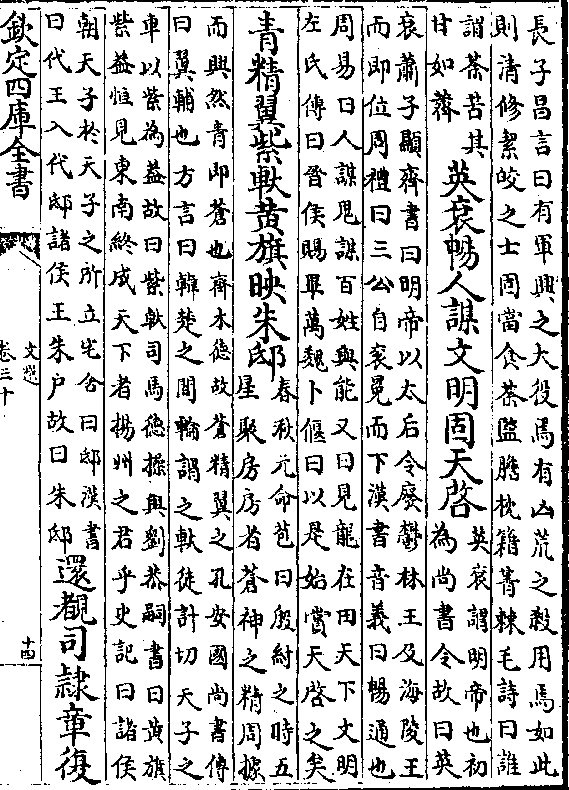 長子昌言曰有軍興之大役焉有凶荒之殺用焉如此
則清修絜皎之士固當食荼監膽枕籍菁棘毛詩曰誰
謂荼苦其
甘如薺
英衮暢人謀文明固天啓
英衮謂明帝也初
為尚書令故曰英
衮蕭子顯齊書曰明帝以太后令廢鬱林王及海陵王
而即位周禮曰三公自衮冕而下漢書音義曰暢通也
周易曰人謀鬼謀百姓與能又曰見龍在田天下文明
左氏傳曰晉侯賜畢萬魏卜偃曰以是始賞天啓之矣
青精翼紫軑黃旗映朱邸
春秋元命苞曰殷紂之時五
星聚房房者蒼神之精周據
而興然青即蒼也齊木德故蒼精翼之孔安國尚書傳
曰翼輔也方言曰韓楚之間輪謂之軑徒計切天子之
車以紫為蓋故曰紫軑司馬德操與劉恭嗣書曰黃旗
紫蓋恒見東南終成天下者揚州之君乎史記曰諸侯
朝天子於天子之所立宅舍曰邸漢書
曰代王入代邸諸侯王朱户故曰朱邸
還覩司隸章復
欽定四庫全書
文選
卷三十
十四